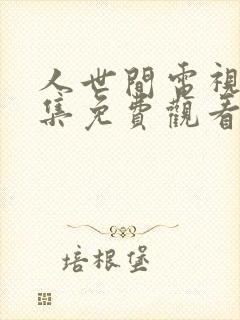 人世間電視
集免費觀看
培根堡